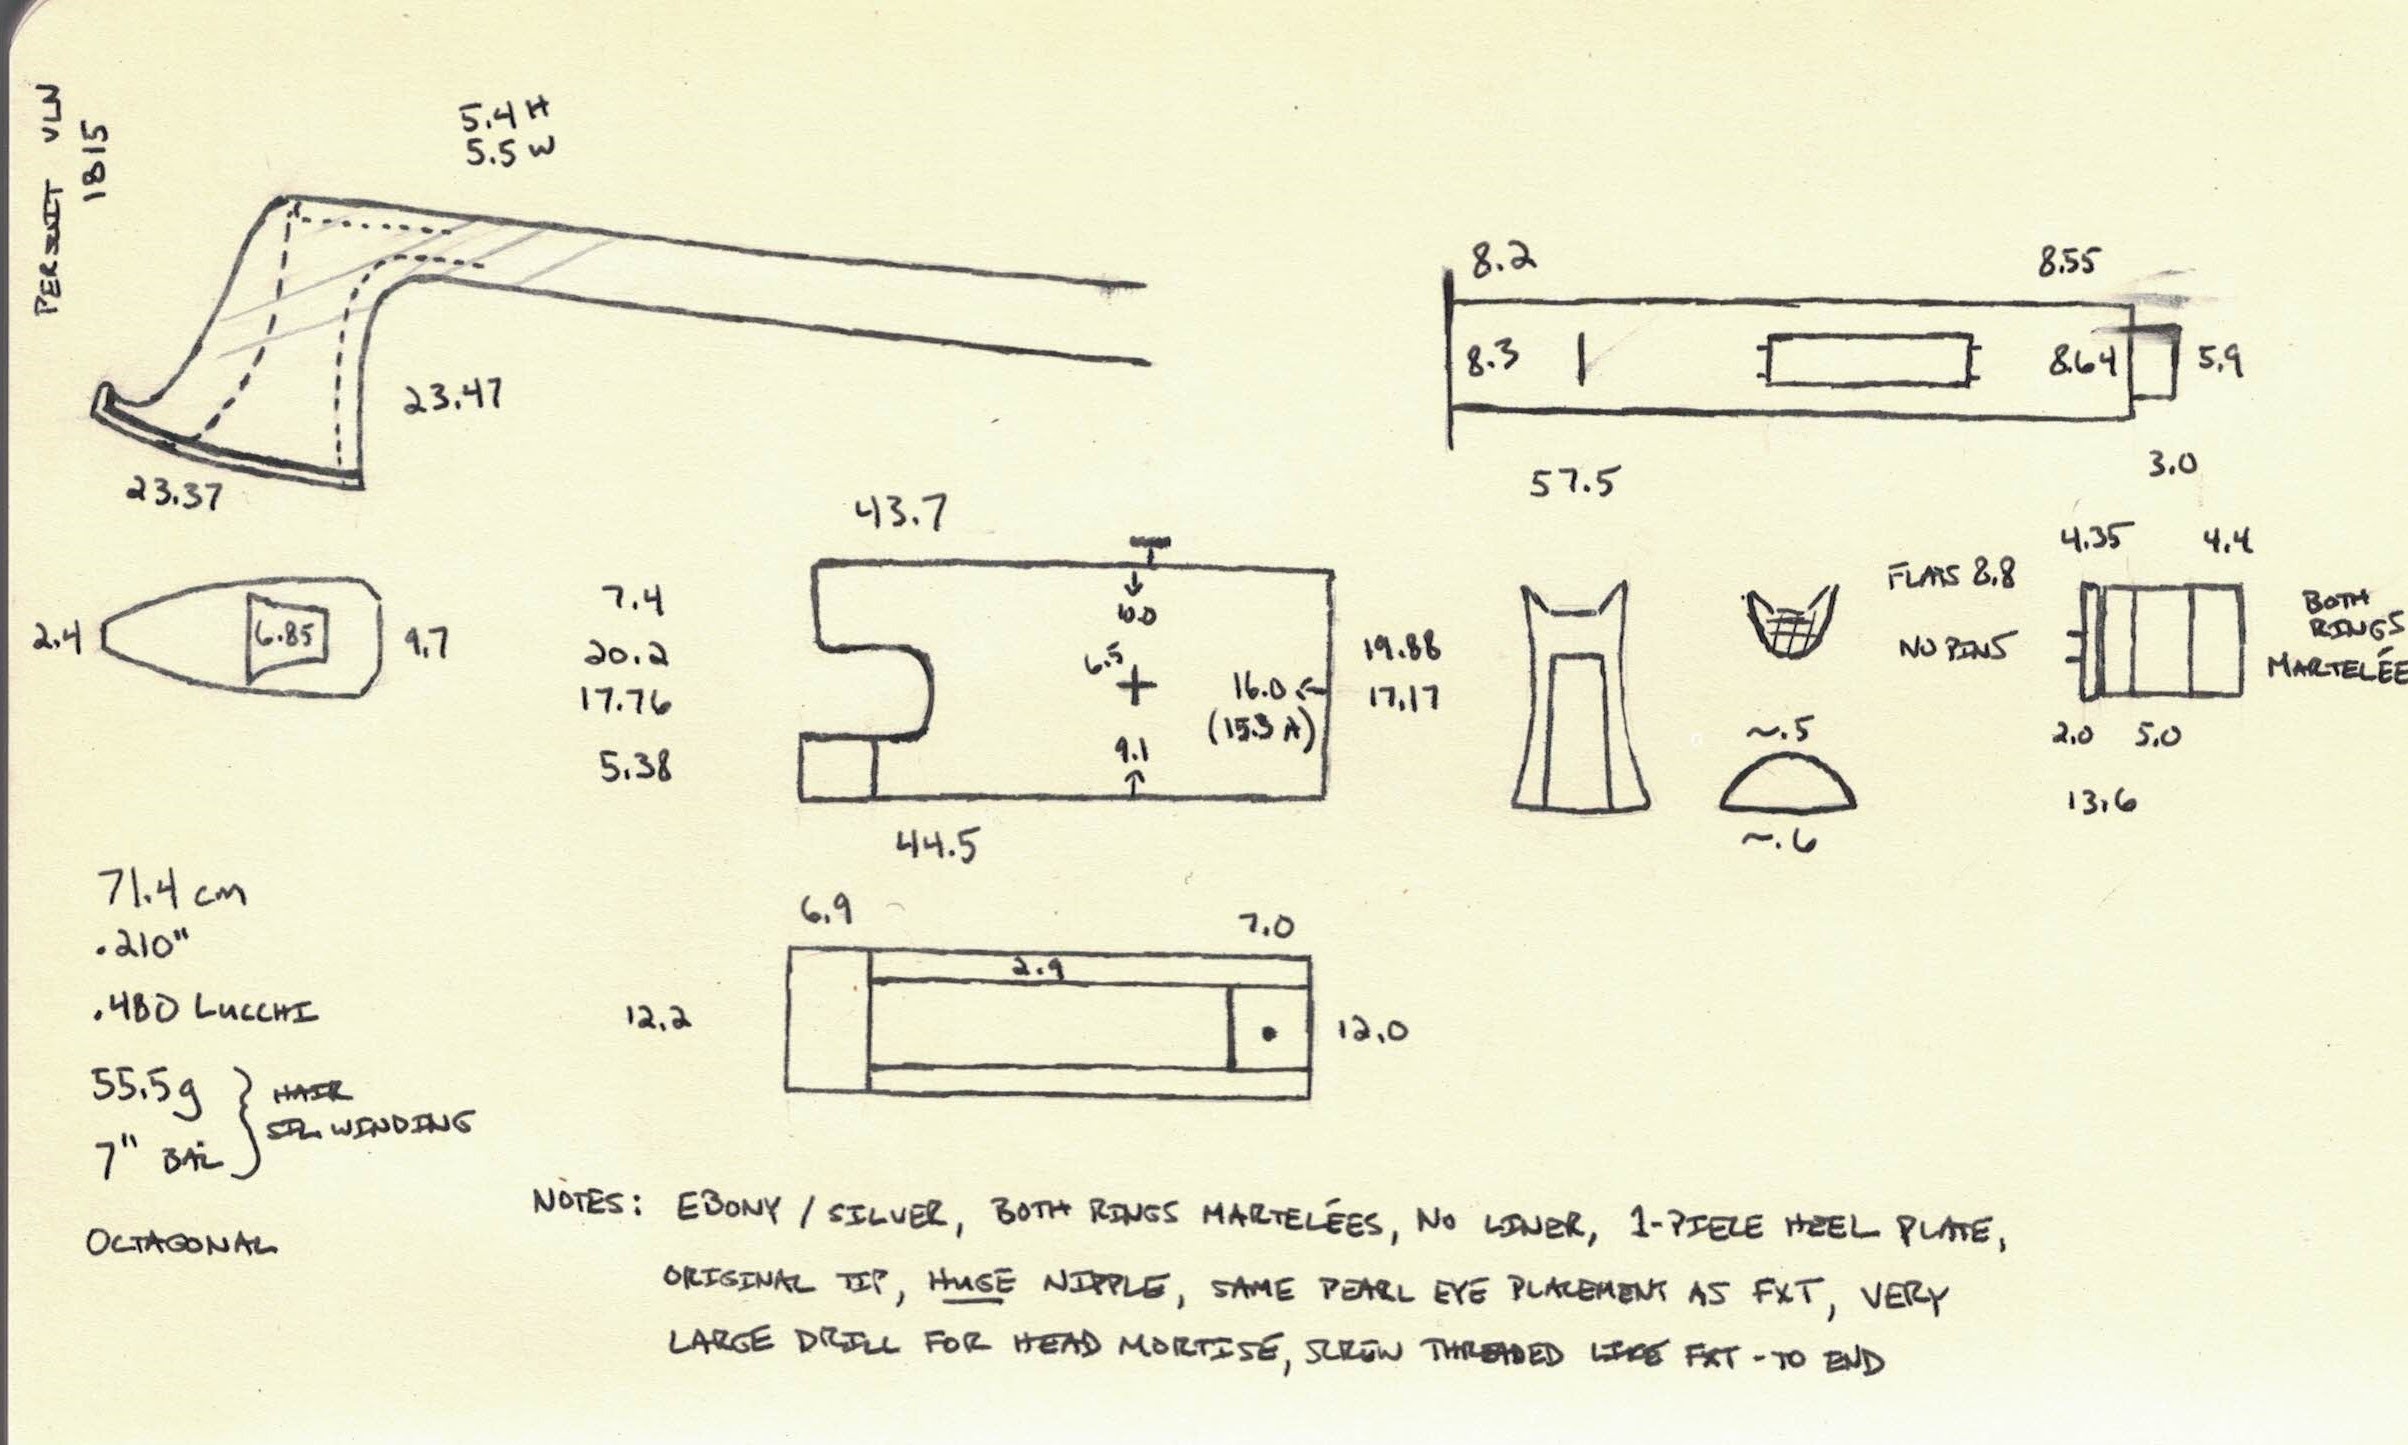 PERSOIT VLN
1815
5.4 H
5.5 W
23.47
23.37
8.2
8.55
8.3
8.64
5.9
57.5
3.0
2.4
6.85
9.7
43.7
7.4
20.2
17.76
5.38
10.0
6.5
16.0
(15.3 A)
9.1
19.88
17.17
44.5
FLATS 8.8
NO PINS
~.5
~.6
4.35
4.4
BOTH
RINGS
MARTELÉE
2.0
5.0
13.6
71.4 cm
.210"
.480 LUCCHI
55.5g
7" BAL
HAIR
SIL WINDING
OCTAGONAL
6.9
7.0
2.9
12.2
12.0
NOTES: EBONY / SILVER, BOTH RINGS MARTELÉES, NO LINER, 1-PIECE HEEL PLATE,
ORIGINAL TIP, HUGE NIPPLE, SAME PEARL EYE PLACEMENT AS FXT, VERY
LARGE DRILL FOR HEAD MORTISE, SCREW THREADED LIKE FXT - TO END